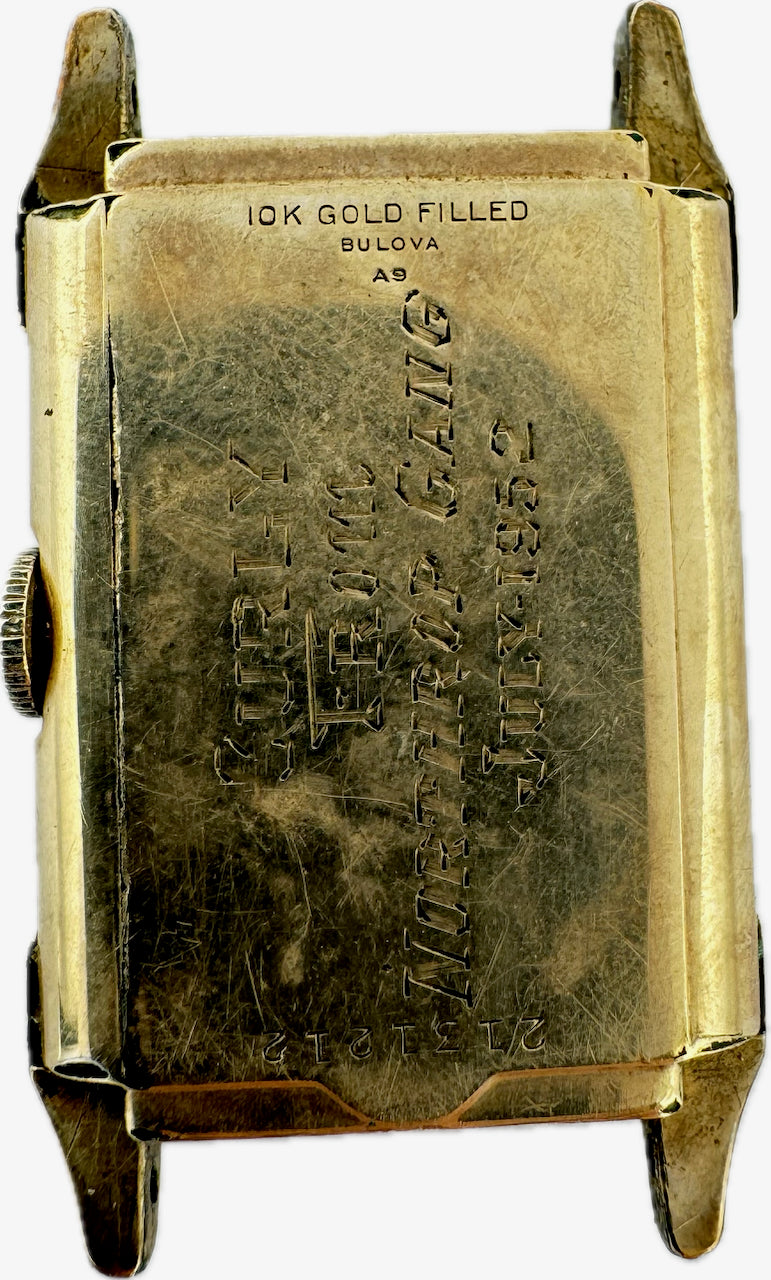 10K GOLD FILLED
BULOVA
A9
CURLY
FROM
NORTHROP GANG
JULY-1952
2131212